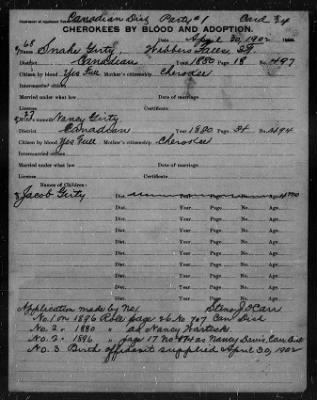 Canadian Dist Party #1 Card 34
CHEROKEES BY BLOOD AND ADOPTION.
April 30, 1902
68 Name Snake Girty, Webbers Falls, I.T.
District Canadian Year 1880 Page 18 No. 497
Citizen by blood Yes Full Mother's citizenship. Cherokee
Intermarried citizen
Married under what law Date of marriage
License Certificate
Nancy Girty
District Canadian Year 1880 Page 34 No.
Citizen by blood Yes Full Mother's citizenship. Cherokee
Intermarried citizen
Married under what law Date of marriage
License Certificate
Names of Children:
Jacob Girty Dist. Year Page No. Age
Dist. Year Page No. Age
Dist. Year Page No. Age
Dist. Year Page No. Age
Dist. Year Page No. Age
Dist. Year Page No. Age
Dist. Year Page No. Age
Application made by No. 
No. 1 on 1896 Roll page 26 No 707 Can Dist
No. 2 " 1880 " as Nancy
No. 2 " 1896 " page 17 No as Nancy Davis, Can Dist
No. 3 Birth affidavit supplied April 30, 1902